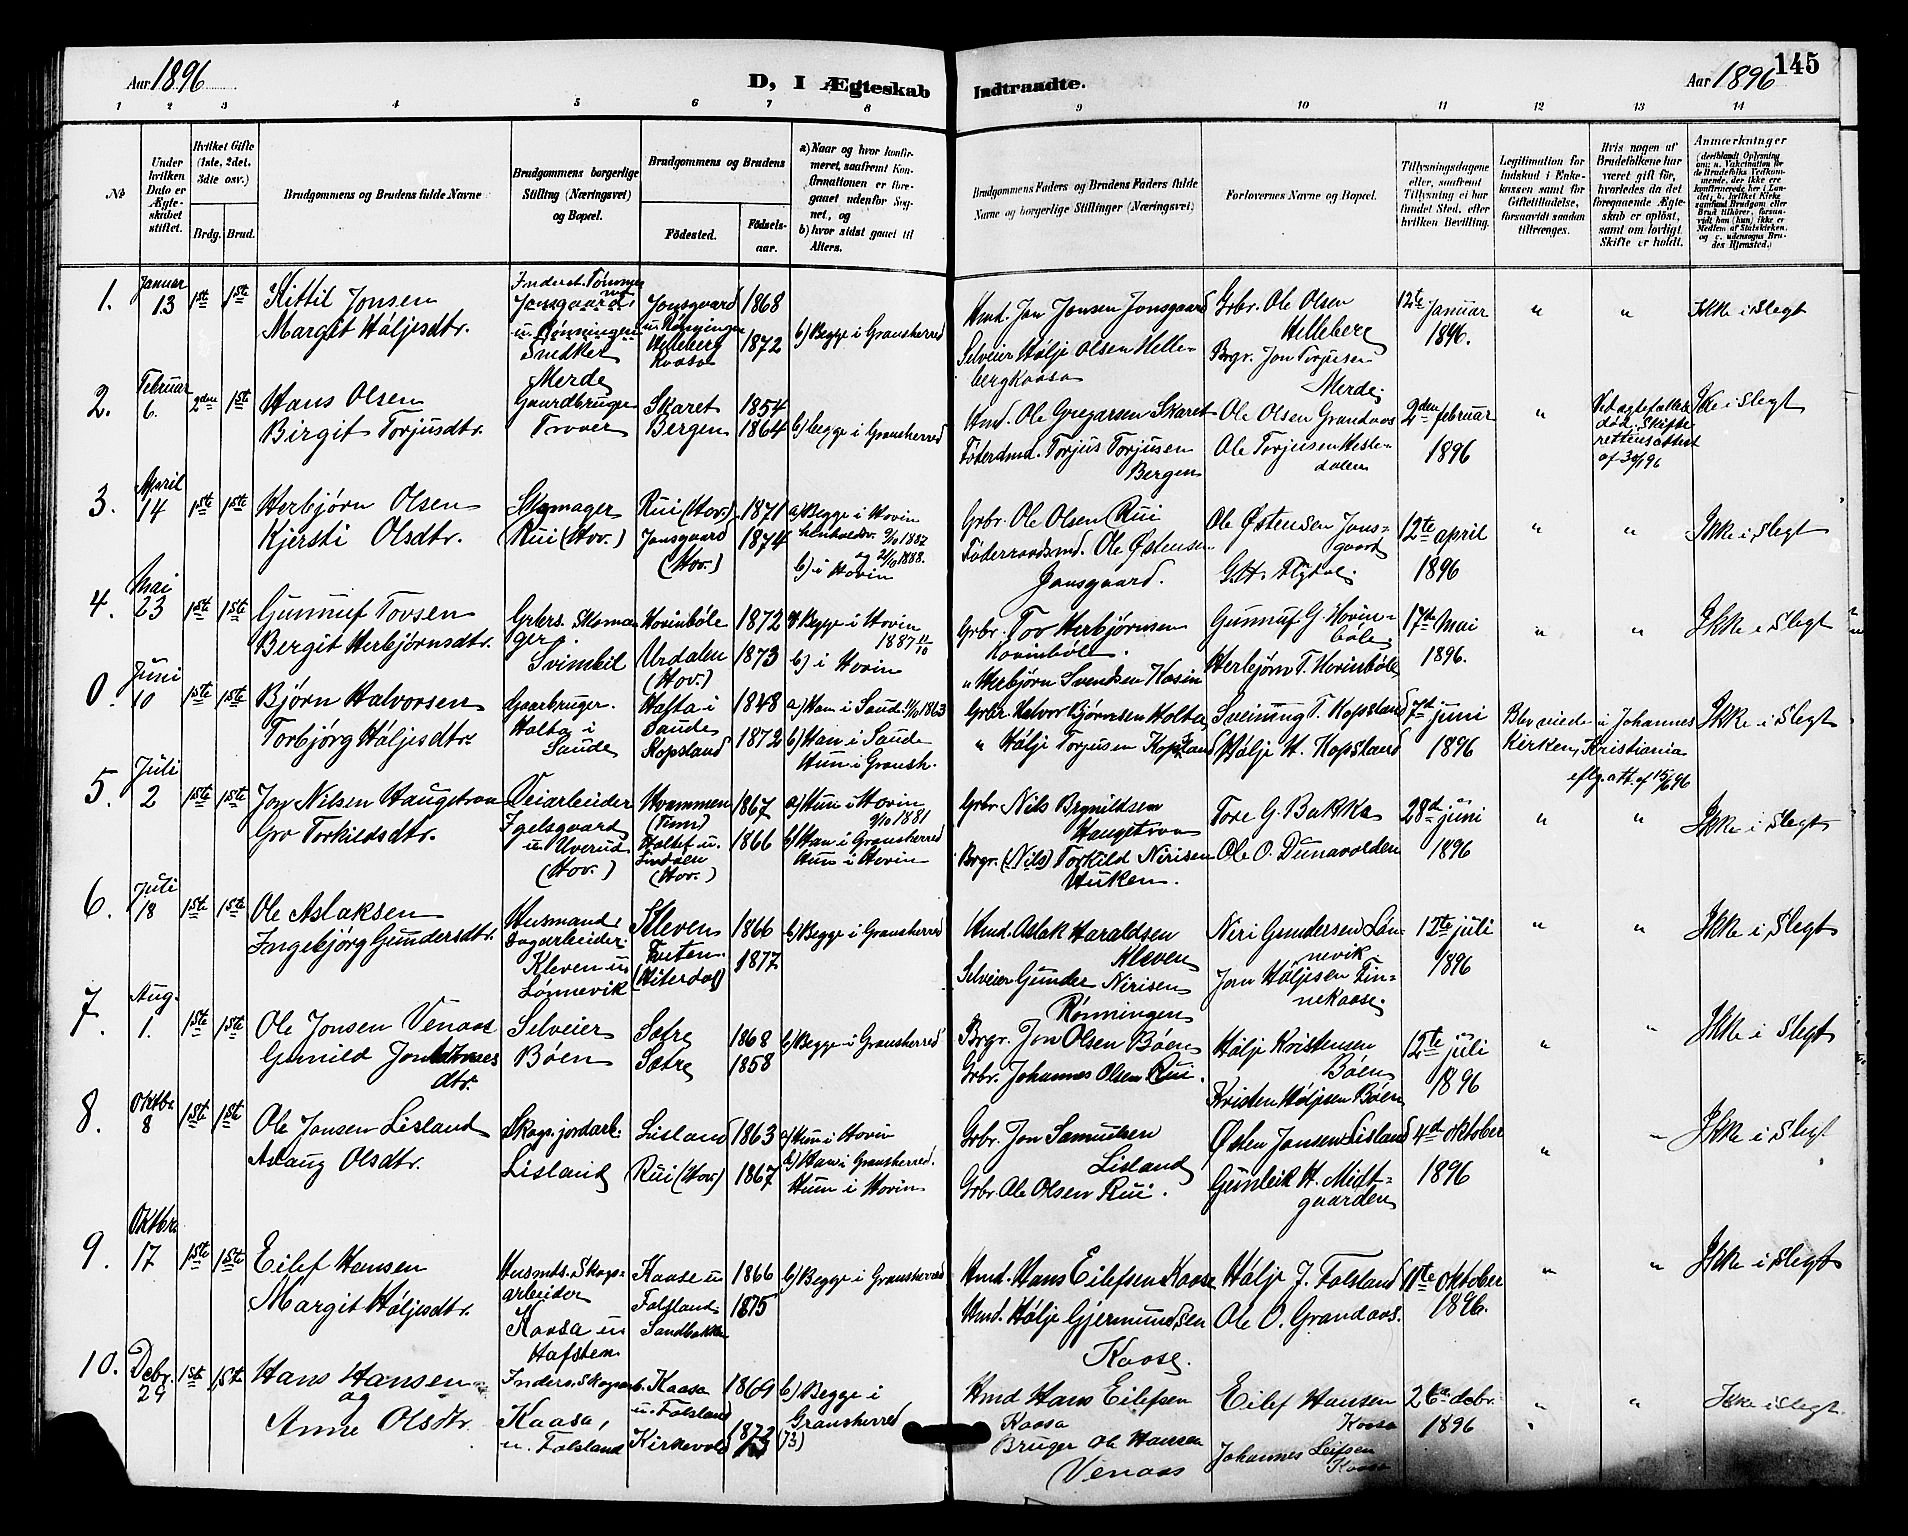 Aar 1896
D, I Ægteskab
Indtraadte.
Aar 1896
145
1 2 3 4 5 6 7 8 9 10 11 12 13 14
No
Under hvilken Dato er Ægteskabet stiftet.
Hvilket Gifte (1ste, 2det, 3die osv.)
Brdg. Brud.
Brudgommens og Brudens fulde Navne
Brudgommens borgerlige Stilling (Næringsvei) og Bopæl.
Brudgommens og Brudens
Fødested.
Fødselsaar.
a) Naar og hvor konfirmeret, saafremt Konfirmationen er foregaaet udenfor Sognet, og
b) hvor sidst gaaet til Alters.
Brudgommens Faders og Brudens Faders fulde Navne og borgerlige Stillinger (Næringsvei)
Forlovernes Navne og Bopæl.
Tillysningsdagene eller, saafremt Tillysning ei har fundet Sted, efter hvilken Bevilling.
Legitimation for Indskud i Enkekassen samt for Giftetilladelse, forsaavidt saadan tiltrænges.
Hvis nogen af Brudefolkene har været gift før, hvorledes da det foregaaende Ægteskab er opløst, samt om lovligt Skifte er holdt.
Anmærkninger
1. Januar 13 1ste 1ste
Kittil Jonsen
Margit Høljesdtr.
Jonsgaard
Snedker
Jonsgaard 1868
Helleberg Kaasa 1872
b) Begge i Gransherred
Hmd. Jon Jonsen Jonsgaard
Selveier Hølje Olsen Hellebergkaasa
Grbr. Ole Olsen Helleberg
Brgr. Jon Torjusen Merde
12te Januar 1896.
" "
Ikke i Slegt
2. Februar 6. 2den 1ste
Hans Olsen
Birgit Torjusdtr.
Gaardbruger
Skaret 1854
Bergen 1864
b) begge i Gransherred
Hmd. Ole Gregarsen Skaret
Føderdmd. Torjus Torjusen Bergen
Ole Olsen Grandaas
Ole Torjusen Hesledalen
2den februar 1896
"
Ikke i Slegt
3. April 14 1ste 1ste
Herbjørn Olsen
Kjersti Olsdtr.
Skomager
Rui (Hov.)
Rui (Hov.) 1871
Jonsgaard (Hov.) 1874
a) Begge i Hovin
b) i Hovin
Grbr. Ole Olsen Rui
Føderraadsmd. Ole Østensen Jonsgaard.
Ole Østensen Jonsgaard
12te april 1896
" "
Ikke i Slegt
4. Mai 23 1ste 1ste
Gunnuf Tovsen
Bergit Herbjørnsdtr.
Svimbil
Hovinbøle 1872
Urdalen (Hov.) 1873
a) Begge i Hovin
b) i Hovin
Grbr. Tov Herbjørnsen Hovinbøle.
" Herbjørn Svendsen Kasin
Gunnuf G. Hovinbøle
Herbjørn T. Hovinbøle
17de Mai 1896.
" "
Ikke i Slegt
0. Juni 10 1ste 1ste
Bjørn Halvorsen
Torbjørg Høljesdtr.
Gaarbruger.
Holta i Saude
Holta i Saude 1848
Kopsland 1872
b) Han i Saude
Hun i Gransh.
Grbr. Halvor Bjørnsen Holta
" Hølje Torjusen Kopsland
Sveinung T. Kopsland
Hølje H. Kopsland
7de juni 1896
Blev viede i Johannes Kirken, Kristiania
eflg. att. af 15/6 96
Ikke i Slegt
5. Juli 2 1ste 1ste
Jon Nilsen Haugstraa
Gro Torkildsdtr.
Veiarbeider
Hvammen (Tinn) 1867
1866
a) Hun i Hovin
b) Han i Gransherred
Hun i Hovin
Grbr. Nils Brynildsen Haugstraa
Brgr. (Nils) Torkild Nirisen Huken.
Tore G. Bakka
Ole O. Dunavolden
28de juni 1896
" "
Ikke i Slegt
6. Juli 18 1ste 1ste
Ole Aslaksen
Ingebjørg Gundersdtr.
Husmand
Dagarbeider.
Kleven u
Lønnevik
Kleven 1866
(Hiterdal) 1877
b) Begge i Gransherred
Hmd. Aslak Haraldsen Kleven
Selveier Gunder Nirisen Rønningen
Niri Gundersen Lønnevik
Jon Høljesen Finnekaase.
12te juli 1896
" "
Ikke i Slegt
7. Aug. 1. 1ste 1ste
Ole Jonsen Venaas
Gunild
Selveier
Bøen
Sætre 1868
Sætre 1858
b) Begge i Gransherred
Brgr. Jon Olsen Bøen
Grbr. Johannes Olsen Rui.
Hølje Kristensen Bøen
Kristen Høljesen Bøen
12te juli 1896
" "
Ikke i Slegt
8. Oktbr. 8 1ste 1ste
Ole Jonsen Lisland
Aslaug Olsdtr.
Lisland
Lisland 1863
Rui (Hov.) 1867
a) Hun i Hovin
b) Han i Gransherred.
Hun i Hovin
Grbr. Jon Samuelsen Lisland
Grbr. Ole Olsen Rui.
Østen Jonsen Lisland
Gunleik H. Midtgaarden
4de oktober 1896
" "
Ikke i Slegt
9. Oktbr 17 1ste 1ste
Eilef Hansen
Margit Høljesdtr.
Husmds. Skogsarbeider
Kaasa u Hafsten
Kaase u Folsland 1866
Sandbakken 1875
b) Begge i Gransherred
Hmd. Hans Eilefsen Kaase
Hmd. Hølje Gjermundsen Kaase.
Hølje J. Folsland
Ole O. Grandaas.
11te oktober 1896.
" "
Ikke i Slegt
10. Debr. 29 1ste 1ste
Hans Hansen
og
Anne Olsdtr.
Kaasa,
u. Folsland
Kaasa u. Folsland 1869
Kirkevold
b) Begge i Gransherred
Hmd Hans Eilefsen Kaasa
Bruger Ole Hansen Venaas
Eilef Hansen Kaasa
Johannes Leifsen Kaasa
26de debr. 1896
" "
Ikke i Slegt